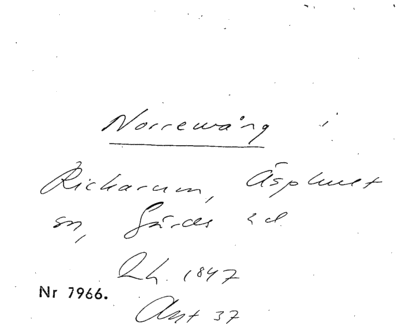 Norrewång i
Rickarum, Äsphult
sn, Gärds hd
Lh. 1847
Nr 7966.
Akt 37